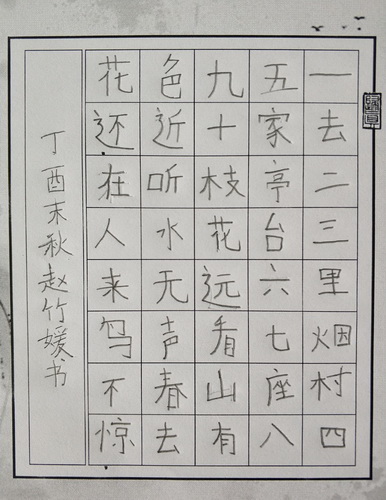 一去二三里烟村四
五家亭台六七座八
九十枝花远看山有
色近听水无声春去
花还在人来鸟不惊
丁酉末秋赵竹媛书